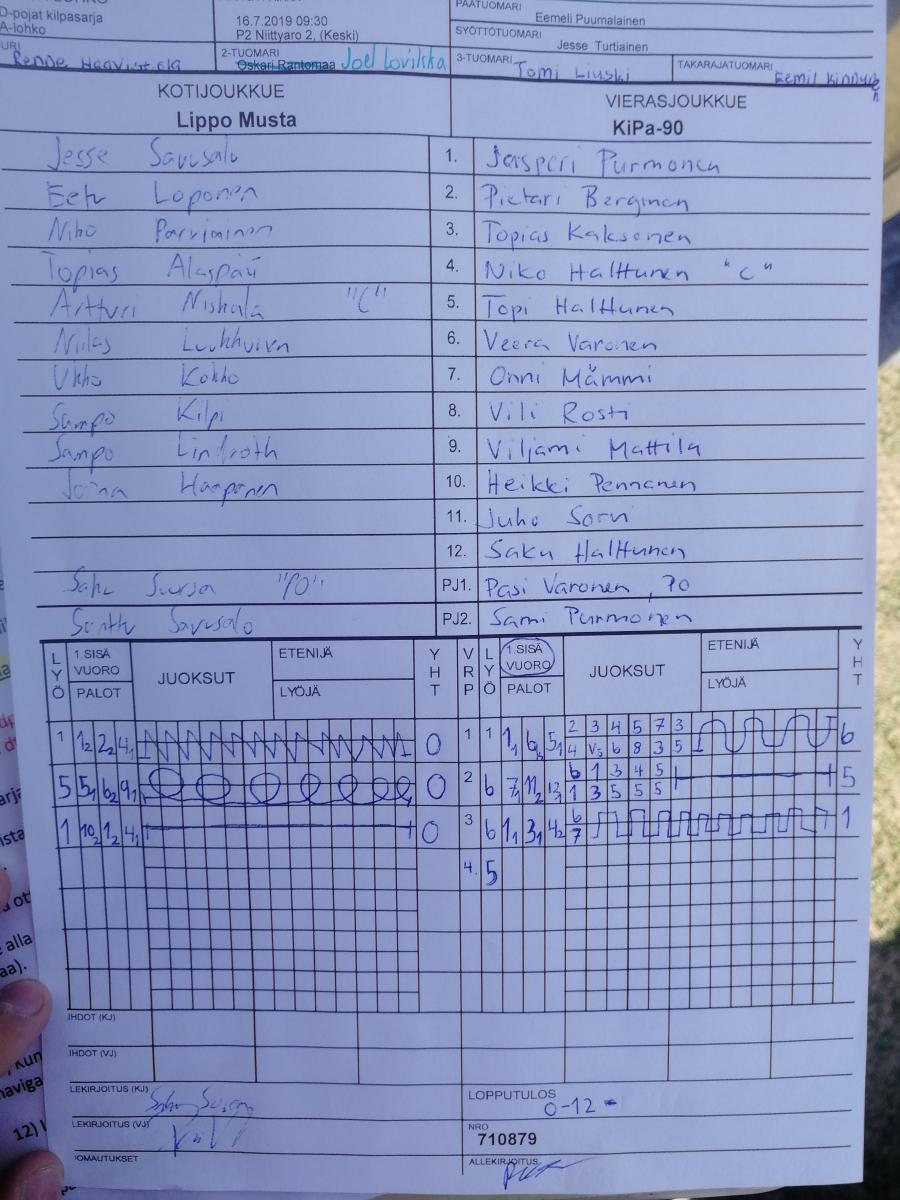 D-pojat kilpasarja
A-lohko
16.7.2019 09:30
P2 Niittyaro 2, (Keski)
PÄÄTUOMARI
Eemeli Puumalainen
SYÖTTÖTUOMARI
Jesse Turtiainen
2-TUOMARI
Oskari Rantomaa Joel
3-TUOMARI Tomi Liuski
TAKARAJATUOMARI Eemil
KOTIJOUKKUE
Lippo Musta
VIERASJOUKKUE
KiPa-90
Jesse Savusalo 1. Jesperi Purmonen
Eetu Loponen 2. Pietari Bergman
Niko Parviainen 3. Topias Kaksonen
Topias Alaspää 4. Niko Halttunen "C"
Artturi Niskala "C" 5. Topi Halttunen
Niilas 6. Veera Varonen
Ukko Kokko 7. Onni Mämmi
Sampo Kilpi 8. Vili Rosti
Sampo Lindroth 9. Viljami Mattila
Joona Haaponen 10. Heikki Pennanen
11. Juho Sorvi
12. Saku Halttunen
"PO" PJ1. Pasi Varonen, PO
Savusalo PJ2. Sami Purmonen
LYÖ 1.SISÄ VUORO PALOT JUOKSUT ETENIJÄ LYÖJÄ YHT VRP LYÖ 1.SISÄ VUORO PALOT JUOKSUT ETENIJÄ LYÖJÄ YHT
1 1₂ 2₂ 4₁ 0 1 1 1₁ 5₁ 2 3 4 5 7 3 6
4 V₅ 6 8 3 5
5 5₁ 6₂ 9₁ 0 2 6 7₁ 11₂ 12₁ 6 1 3 4 5 5
1 3 5 5 5
1 10₂ 1₂ 4₁ 0 3 6 1₁ 3₁ 4₂ 6 1
7
4. 5
IHDOT (KJ)
IHDOT (VJ)
LEKIRJOITUS (KJ)
LOPPUTULOS
0-12
LEKIRJOITUS (VJ)
NRO
710879
OMAUTUKSET
ALLEKIRJOITUS